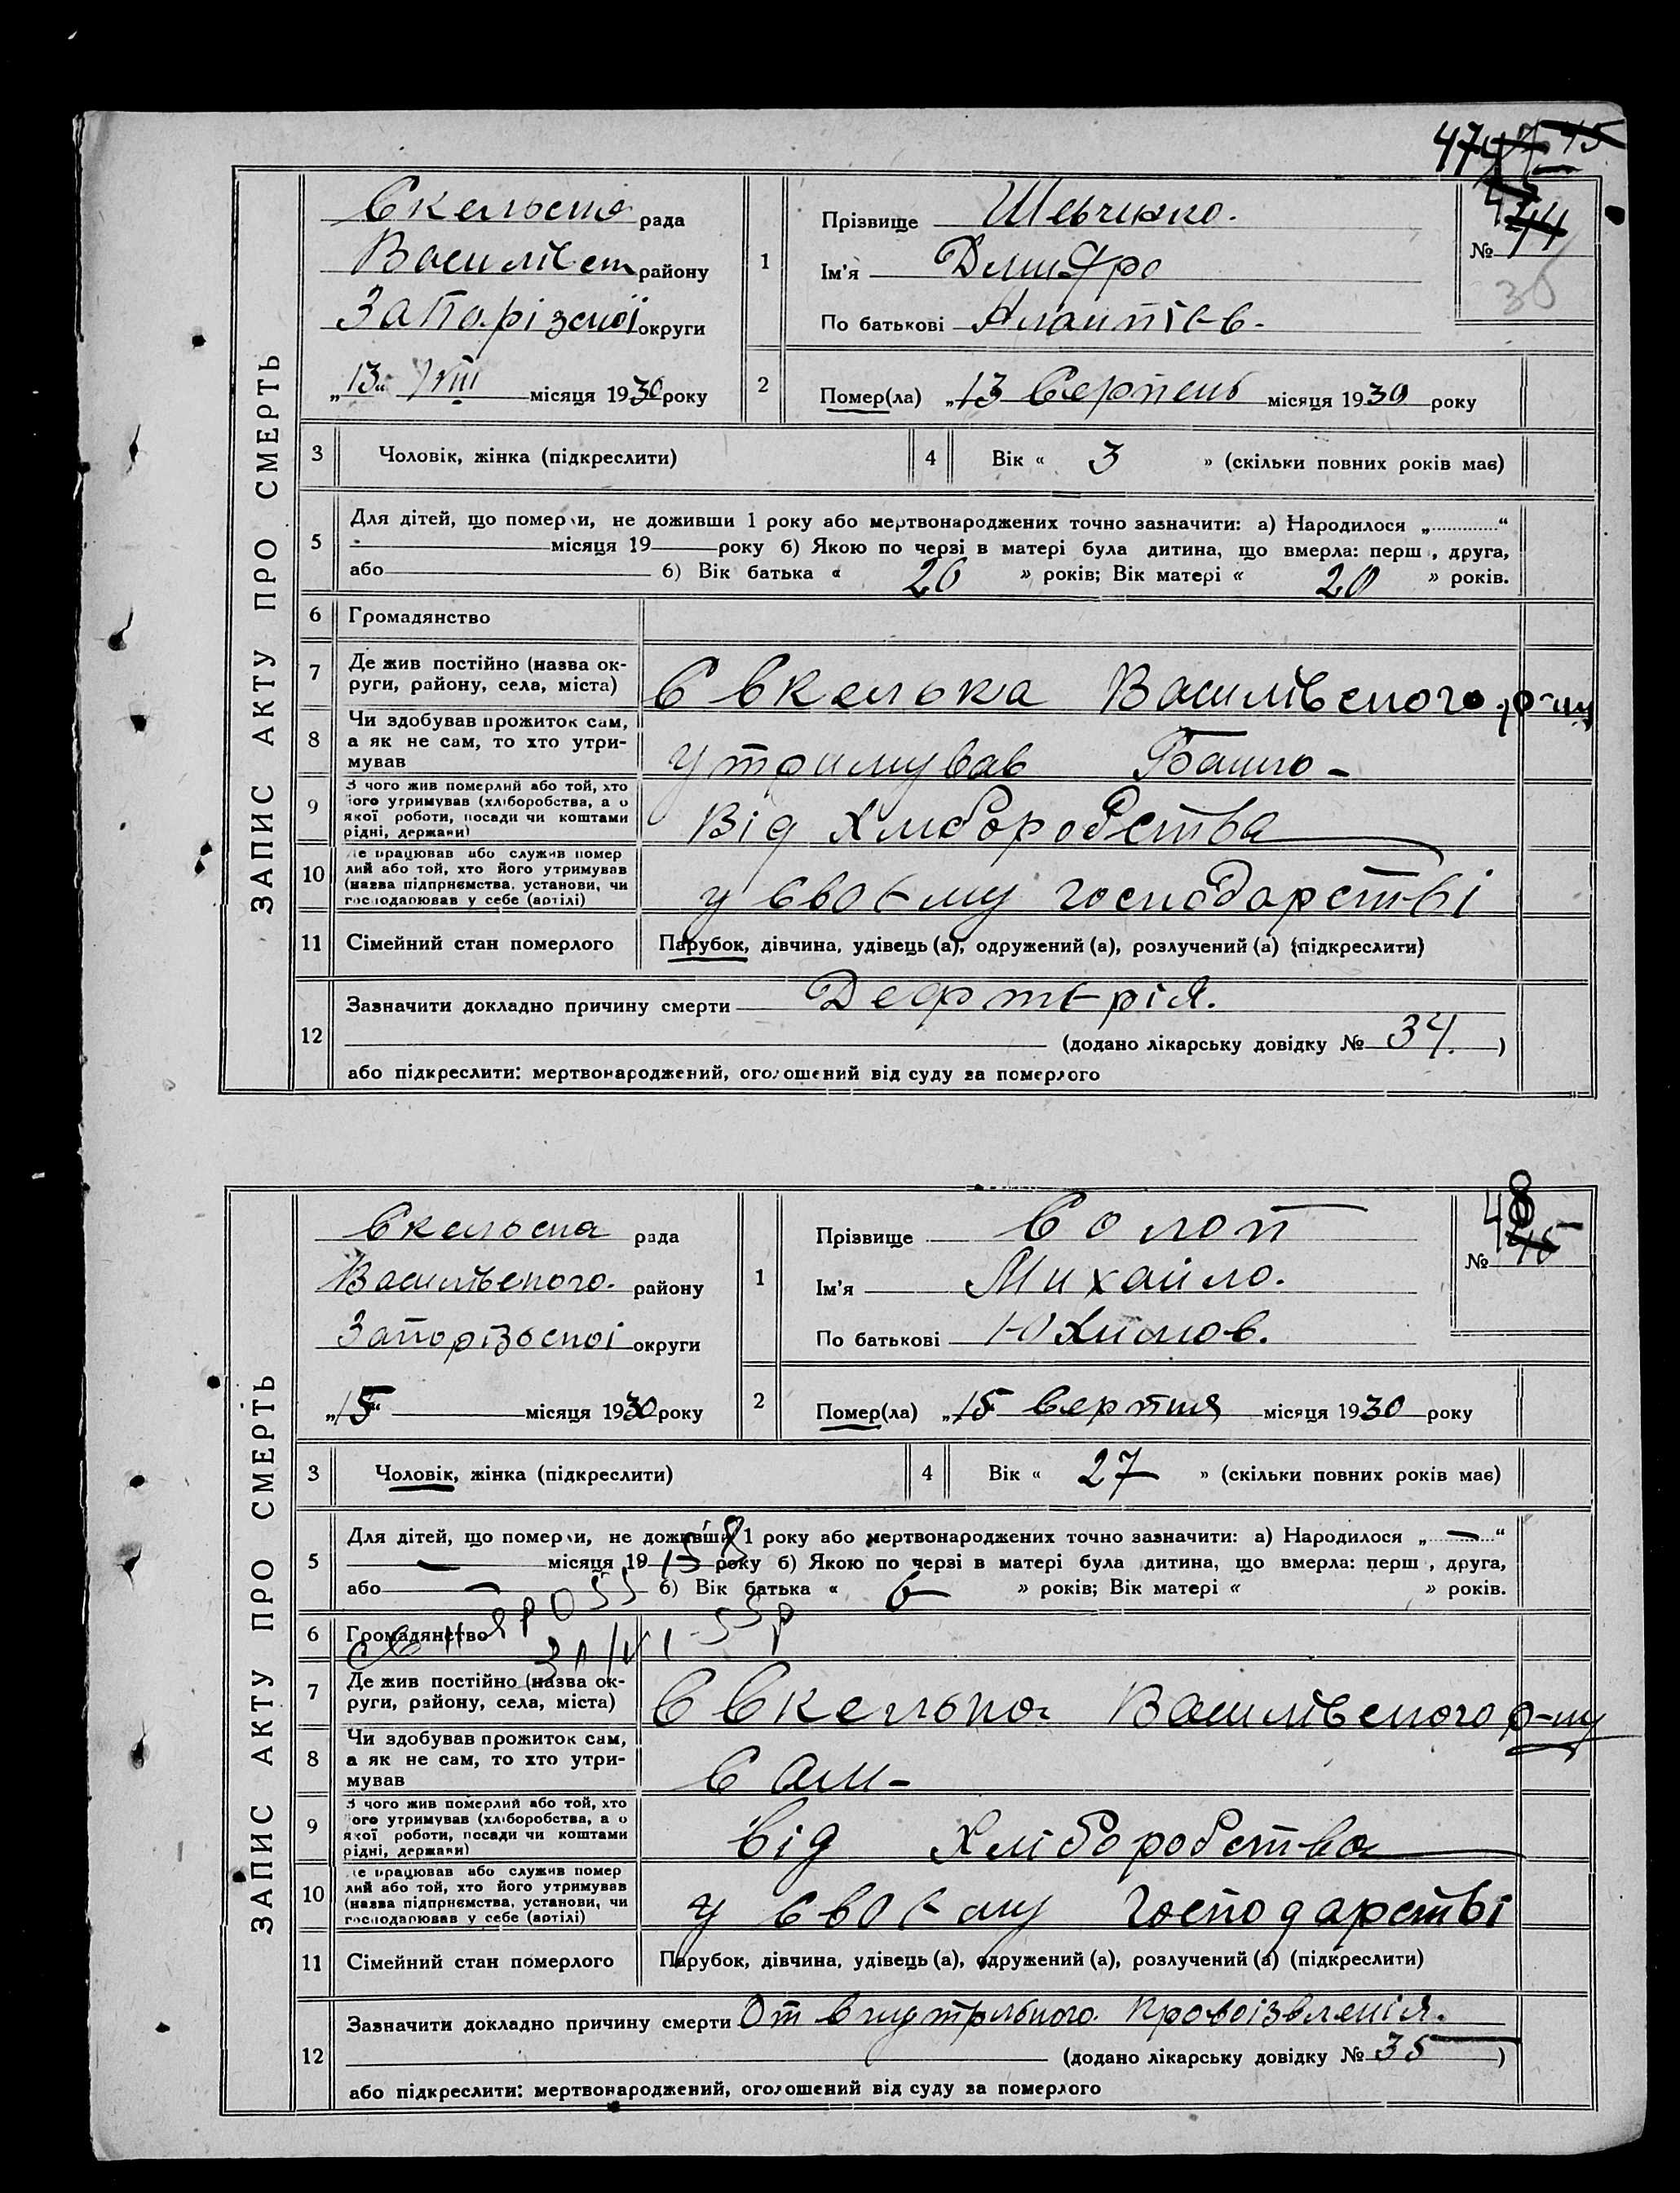 474
ЗАПИС АКТУ ПРО СМЕРТЬ
Скельська рада
Василівськ району
Запорізської округи
„13“ VIII місяця 1930 року
1
Прізвище Шевченко.
Ім'я Дмитро
По батькові
№ 44
2
Помер(ла) „13 Серпень місяця 1930 року
3 Чоловік, жінка (підкреслити)
4 Вік « 3 » (скільки повних років має)
5 Для дітей, що померли, не доживши 1 року або мертвонароджених точно зазначити: а) Народилося „ “
місяця 19 року б) Якою по черзі в матері була дитина, що вмерла: перш , друга,
або б) Вік батька « 20 » років; Вік матері « 20 » років.
6 Громадянство
7 Де жив постійно (назва ок-
руги, району, села, міста)
С Скелька Василівського р-ну
8 Чи здобував прожиток сам,
а як не сам, то хто утри-
мував
утримував Батько -
9 З чого жив померлий або той, хто
його утримував (хліборобства, а о
якої роботи, посади чи коштами
рідні, держави)
Від Хліборобства
10 Де працював або служив помер
лий або той, хто його утримував
(назва підприємства, установи, чи
господарював у себе (артілі)
у своєму господарстві
11 Сімейний стан померлого Парубок, дівчина, удівець (а), одружений (а), розлучений (а) (підкреслити)
12 Зазначити докладно причину смерти Дефтерія.
(додано лікарську довідку № 34. )
або підкреслити: мертвонароджений, оголошений від суду за померлого
ЗАПИС АКТУ ПРО СМЕРТЬ
Скельська рада
Василівського. району
Запорізської округи
„15“ місяця 1930 року
1
Прізвище Солоп
Ім'я Михайло.
По батькові Юхимов.
48
№ 45
2
Помер(ла) „15 Серпня місяця 1930 року
3 Чоловік, жінка (підкреслити)
4 Вік « 27 » (скільки повних років має)
5 Для дітей, що померли, не доживши 1 року або мертвонароджених точно зазначити: а) Народилося „ — “
— місяця 19 року б) Якою по черзі в матері була дитина, що вмерла: перш , друга,
або — б) Вік батька « » років; Вік матері « » років.
6 Громадянство
7 Де жив постійно (назва ок-
руги, району, села, міста)
С Скелька Василівського р-ну
8 Чи здобував прожиток сам,
а як не сам, то хто утри-
мував
Сам -
9 З чого жив померлий або той, хто
його утримував (хліборобства, а о
якої роботи, посади чи коштами
рідні, держави)
Від Хліборобства
10 Де працював або служив помер
лий або той, хто його утримував
(назва підприємства, установи, чи
господарював у себе (артілі)
у своєму господарстві
11 Сімейний стан померлого Парубок, дівчина, удівець (а), одружений (а), розлучений (а) (підкреслити)
12 Зазначити докладно причину смерти От
(додано лікарську довідку № 35 )
або підкреслити: мертвонароджений, оголошений від суду за померлого